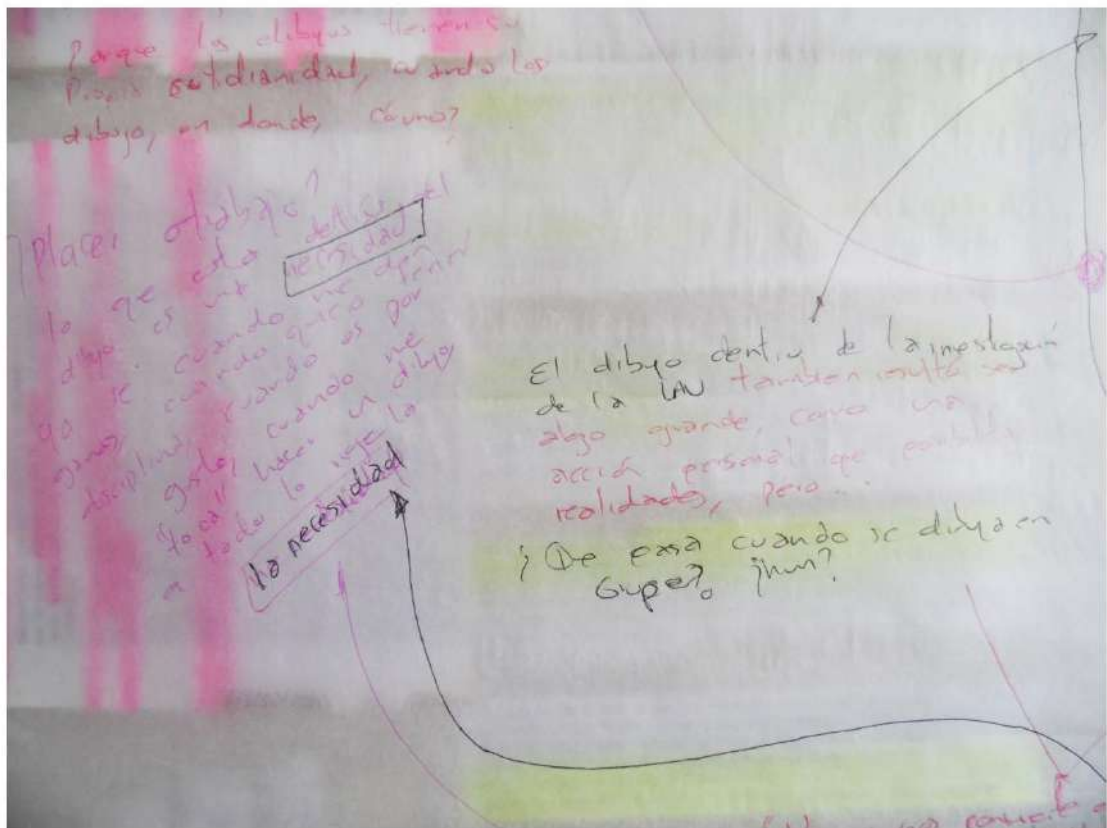 Porque los dibujos tienen su
Propia cotidianidad, cuando los
dibujo, en donde, cómo?
¿Placer dibajo?
lo que esta detras del
dibujo es una necesidad
yo se cuando me den
ganas, cuando quiero tener
disciplina, cuando es por
gusto, cuando me
toca hacer un dibujo
a todo lo
la necesidad
El dibujo dentro de la investigación
de la también resulta ser
algo grande, como una
acción personal que posibilita
realidades, pero
¿Que pasa cuando se dibuja en
Grupo? ¡hum?